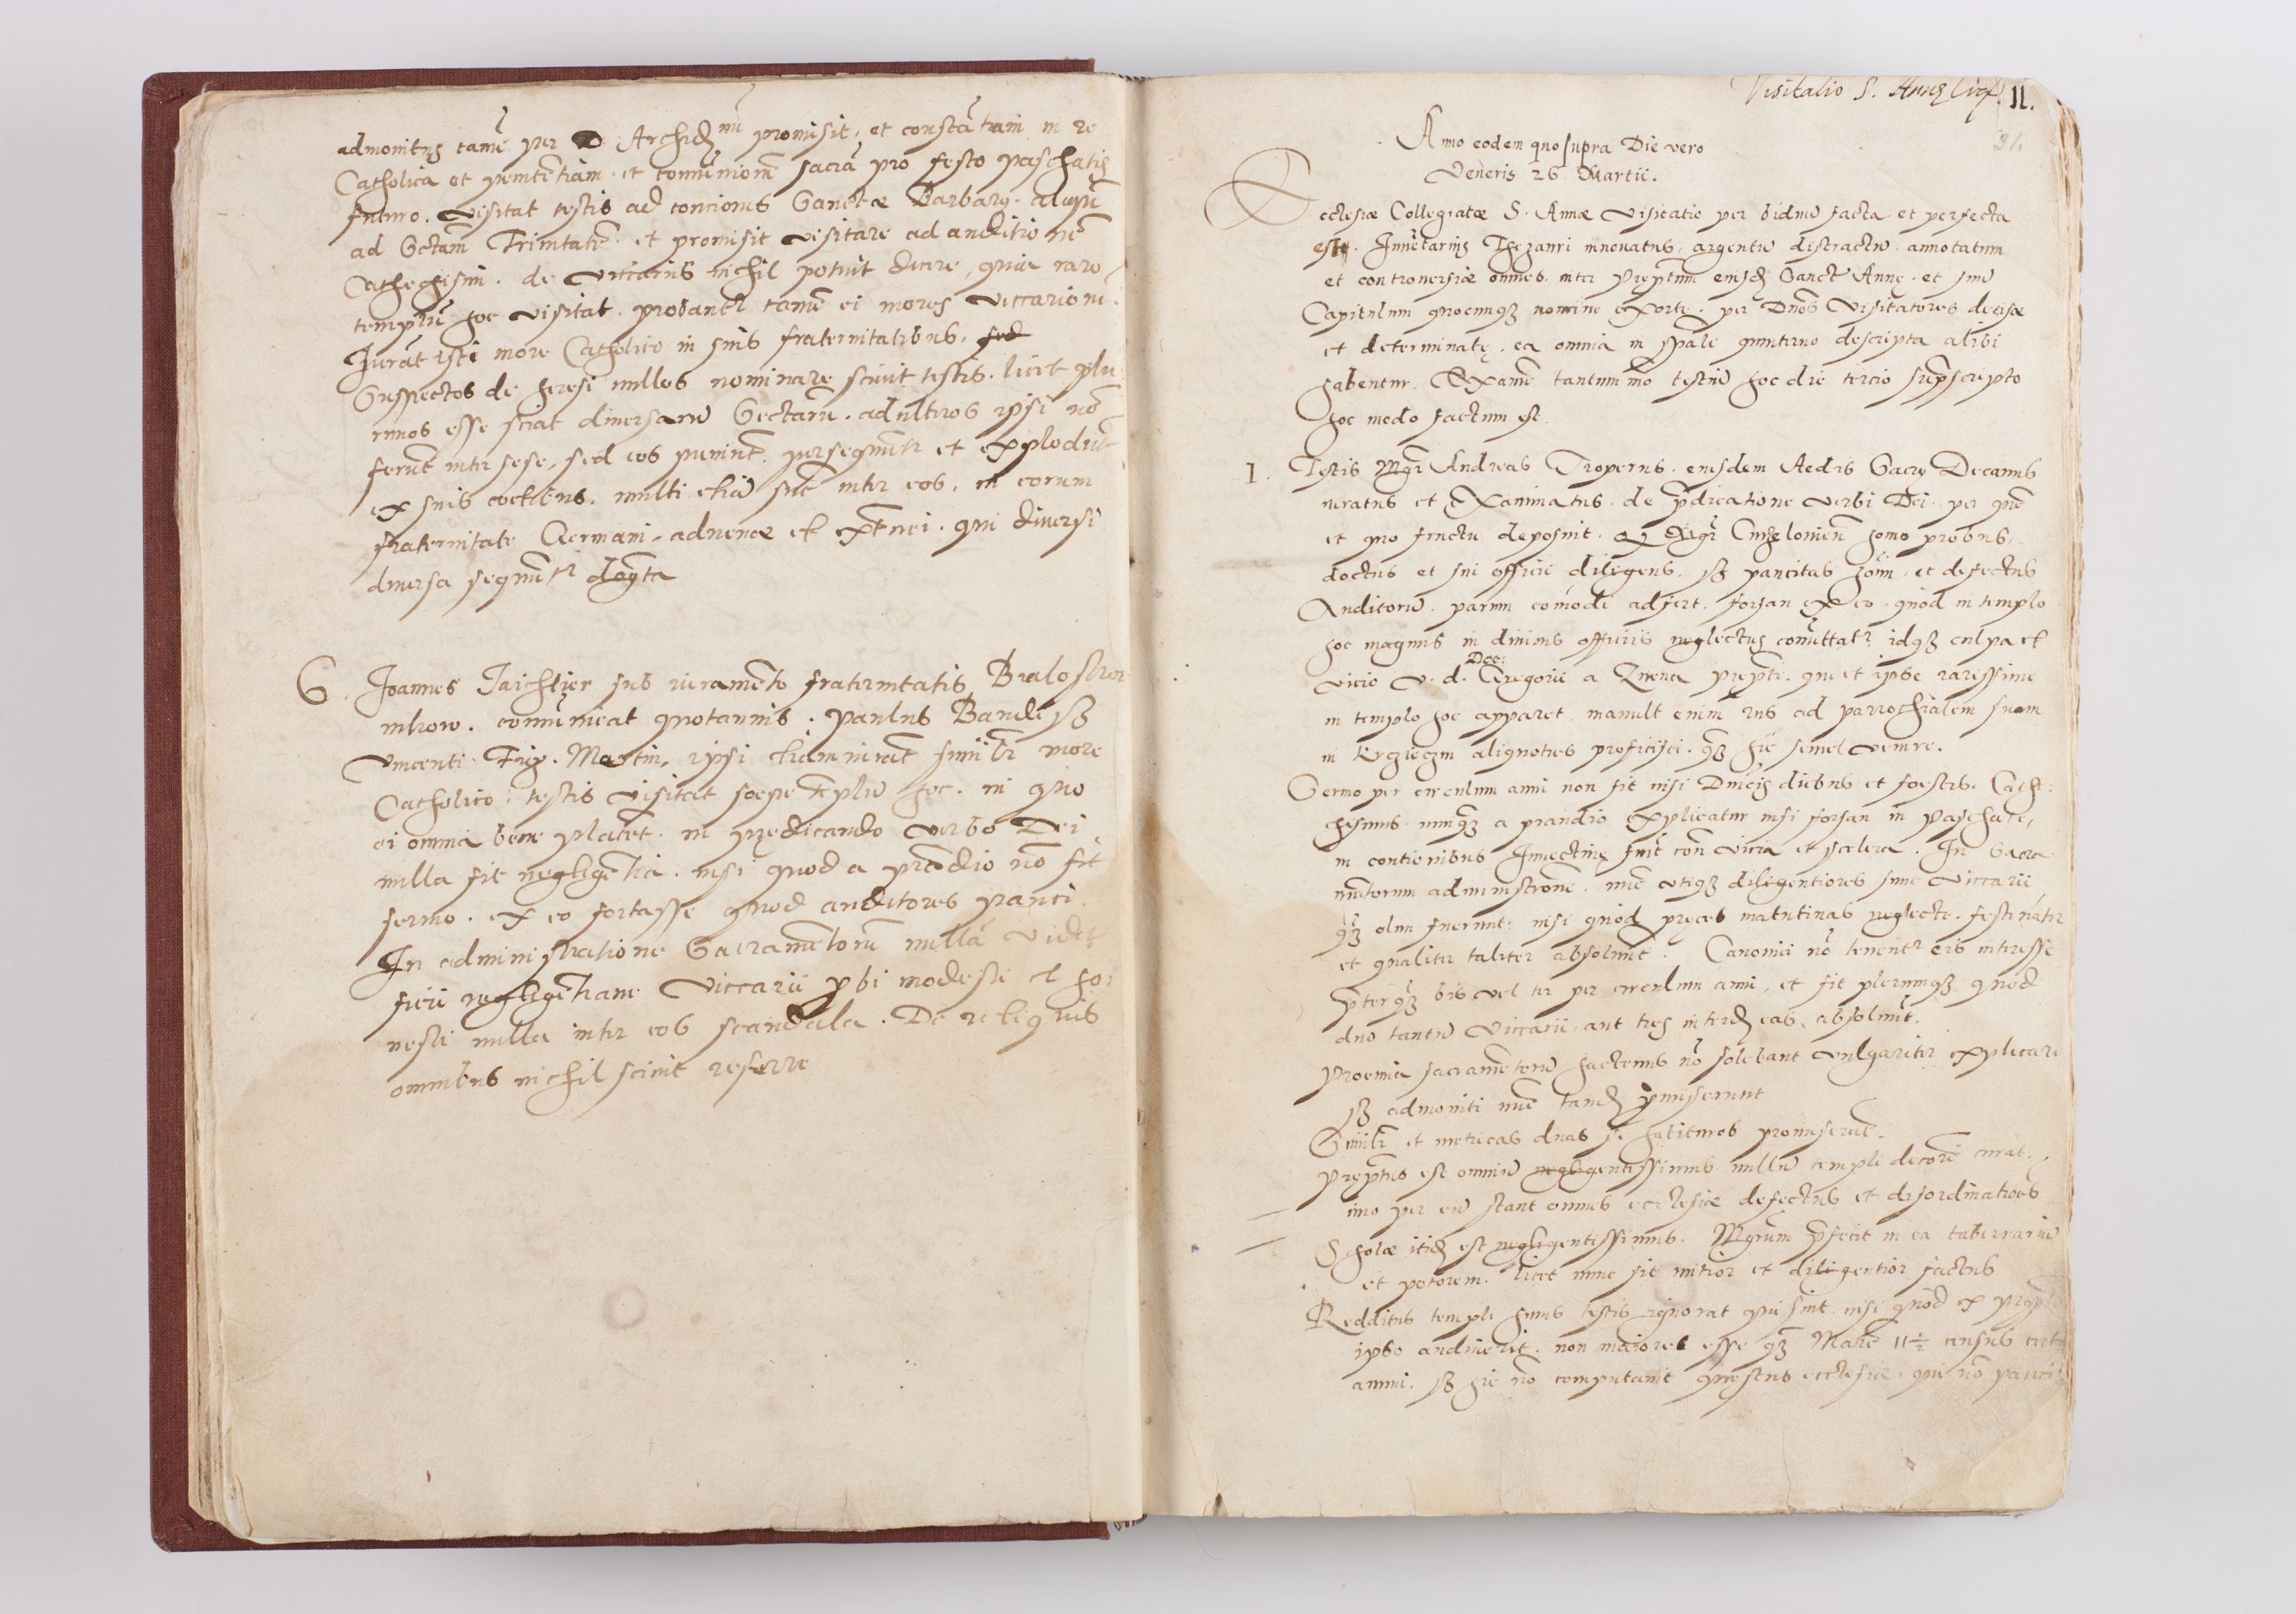 admonitus tamē per Archid nū promisit, et constātiam in re
Catholica et penitētiam et comūnionē sacrā pro festo paschatis
futuro. visitat testis ad conciones Sanctæ Barbarę. aliqñ
ad Sctam̄ Trinitatē. et promisit visitare ad auditionē
Cathechismi. de viccariis nichil potuit dicere, quia raro
templū hoc visitat. probantr tamē ei mores viccariorū.
Jurāt isti more Catholico in suis fraternitatibus.
Suspectos de heresi nullos nominare scivit testis. licet plu
rimos esse sciat diversarū Sectarū. adulteros ipsi nō
ferūt inter sese, sed eos puniūt. persequūtr et explodūt
ex suis coetibus. multi etiā sūt inter eos, in eorum
fraternitate Germani, advenæ et extr̄nei. qui diversi
diversa sequūtr dogm̄ta
6. Joannes Taichlier sub iuramento fraternitatis
comūnicat quotannis. Paulus
Vincenti Martin, ipsi etiam iurāt simil̄r more
Catholico: testis visitat soepe tēplū hoc. in quo
ei omnia bene placēt. in prędicando verbo Dei
nulla fit negligētia. nisi quod a prādio nō fit
sermo. ex eo fortasse quod auditores pauci.
In administratione Sacramētorū nullā vidit
fieri negligētiam Viccarii p̄bi modesti et ho:
nesti nulla inter eos scandala. De reliquis
omnibus nichil scivit referre
Visitatio S. Annę 11.
31.
Anno eodem quo supra Die vero
Veneris 26 Martii.
Ecclesiæ Collegiatæ S. Annæ visitatio per biduū facta et perfecta
est. Invētarius Thezauri innovatus, argentū distractū annotatum
et controversiæ omnes inter Prępositum eiusd Sanctæ Annę. et suū
Capitulum quocunqȝ nomine exortę. per Dnōs Visitatores decisæ
et determinatę. ea omnia in sp̄ale quinterno descripta alibi
habentur. Examē tantummō testiū hoc die tercio supscripto
hoc modo factum est.
1. Testis Mgr̄ Andreas Troperus. eiusdem Aedis Sacrę Decanus
iuratus et Examinatus. de p̄dicatione verbi Dei per quē
et quo fructu deposuit. qȝ Mgr̄ homo probus,
doctus et sui officii diligens. sȝ paucitas hōim et defectus
Auditorū. parum comōdi adfert. forsan ex eo quod in templo
hoc magnus in divinis officiis neglectus comittatr idqȝ culpa et
vicio V. d. Doc: Gregorii a Znena pręp̄ti. qui et ipse rarissime
in templo hoc apparet. mavult enim rus ad parrochialem suam
in aliquoties proficisci. qȝ hic semel venire.
Sermo per circulum anni non fit nisi Dnicis diebus et foestis. Cathe:
chismus nunqȝ a prandio explicatur nisi forsan in Paschate,
in contionibus Invectivę sūt con vicia et scelera. In Sacra
mētorum administrōne. nūc utiqȝ diligentiores sunt viccarii
qȝ olim fuerunt: nisi quod preces matutinas neglecte, festināter
et qualiter taliter absolvūt. Canonici nō tenentr eis interesse
p̄terqȝ bis vel ter per circulum anni, et fit plerunqȝ quod
duo tantū Viccarii, aut tres interd eas, absolvūt.
Proemia sacramētorū hactenus nō solebant vulgariter explicare
sȝ admoniti nūc tand p̄miserunt
Simil̄r et metricas duas se habituros promiserūt.
Prępositus est omniū negligentissimus nullū templi decorē curat.
imo per eū stant omnes ecclesiæ defectus et disordinatioēs
Scholæ itid est negligentissimus. Mgrum p̄fecit in ea tabernariū
et potorem. licet nunc sit mitior et diligentior factus
Redditus templi huius testis ignorat qui sint. nisi quod ex prępto
ipso audiverit. non maiores esse qȝ Marc 11½ census
annui. sȝ hic nō computavit questus ecclesiæ. qui nō pauci